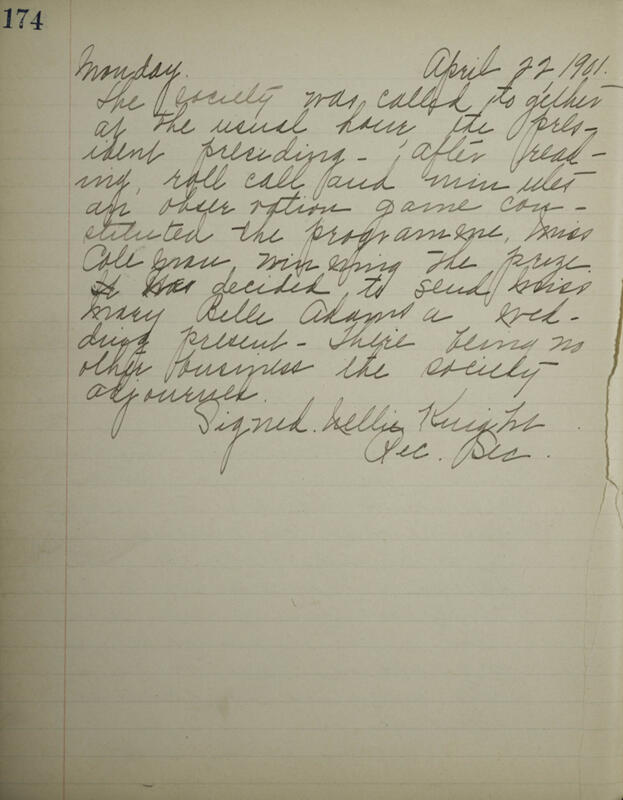 174
Monday. April 22, 1901.
The society was called together
at the usual hour, the pres-
ident presiding - after read-
ing, roll call and minutes
an observation game con-
stituted the programme, Miss
Coleman winning the prize.
It was decided to send Miss
Mary Belle Adams a wed-
ding present - There being no
other business the society
adjourned.
Signed. Nellie Knight.
Rec. Sec.